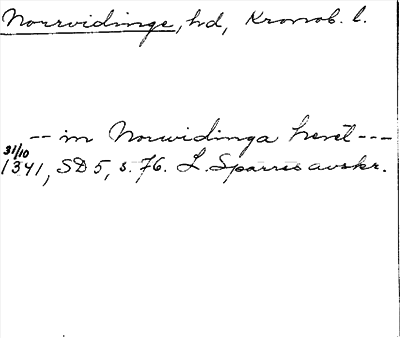 Norrvidinge, hd, Kronob. l.
-- in Norwidinga hæret ---
31/10
1341, SD 5, s. 76. L. Sparres avskr.